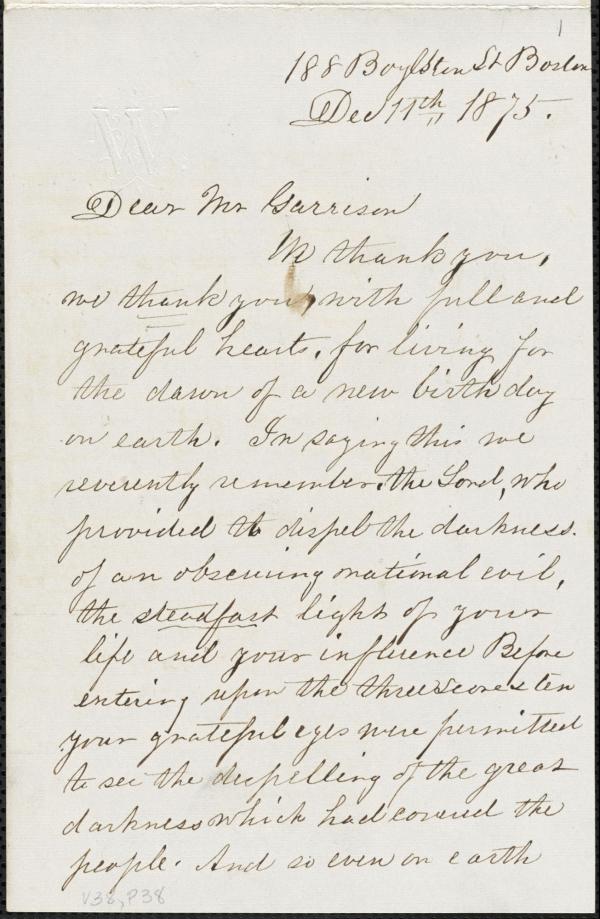 1
188 Boylston St Boston
Dec 11th 1875.
W
Dear Mr Garrison
We thank you,
we thank you, with full and
grateful hearts, for living for
the dawn of a new birth day
on earth. In saying this we
reverently remember the Lord, who
provided to dispel the darkness
of an obscuring national evil,
the steadfast light of your
life and your influence Before
entering upon the threescore & ten
your grateful eyes were permitted
to see the dispelling of the great
darkness which had covered the
people. And so even on earth
V38, P38